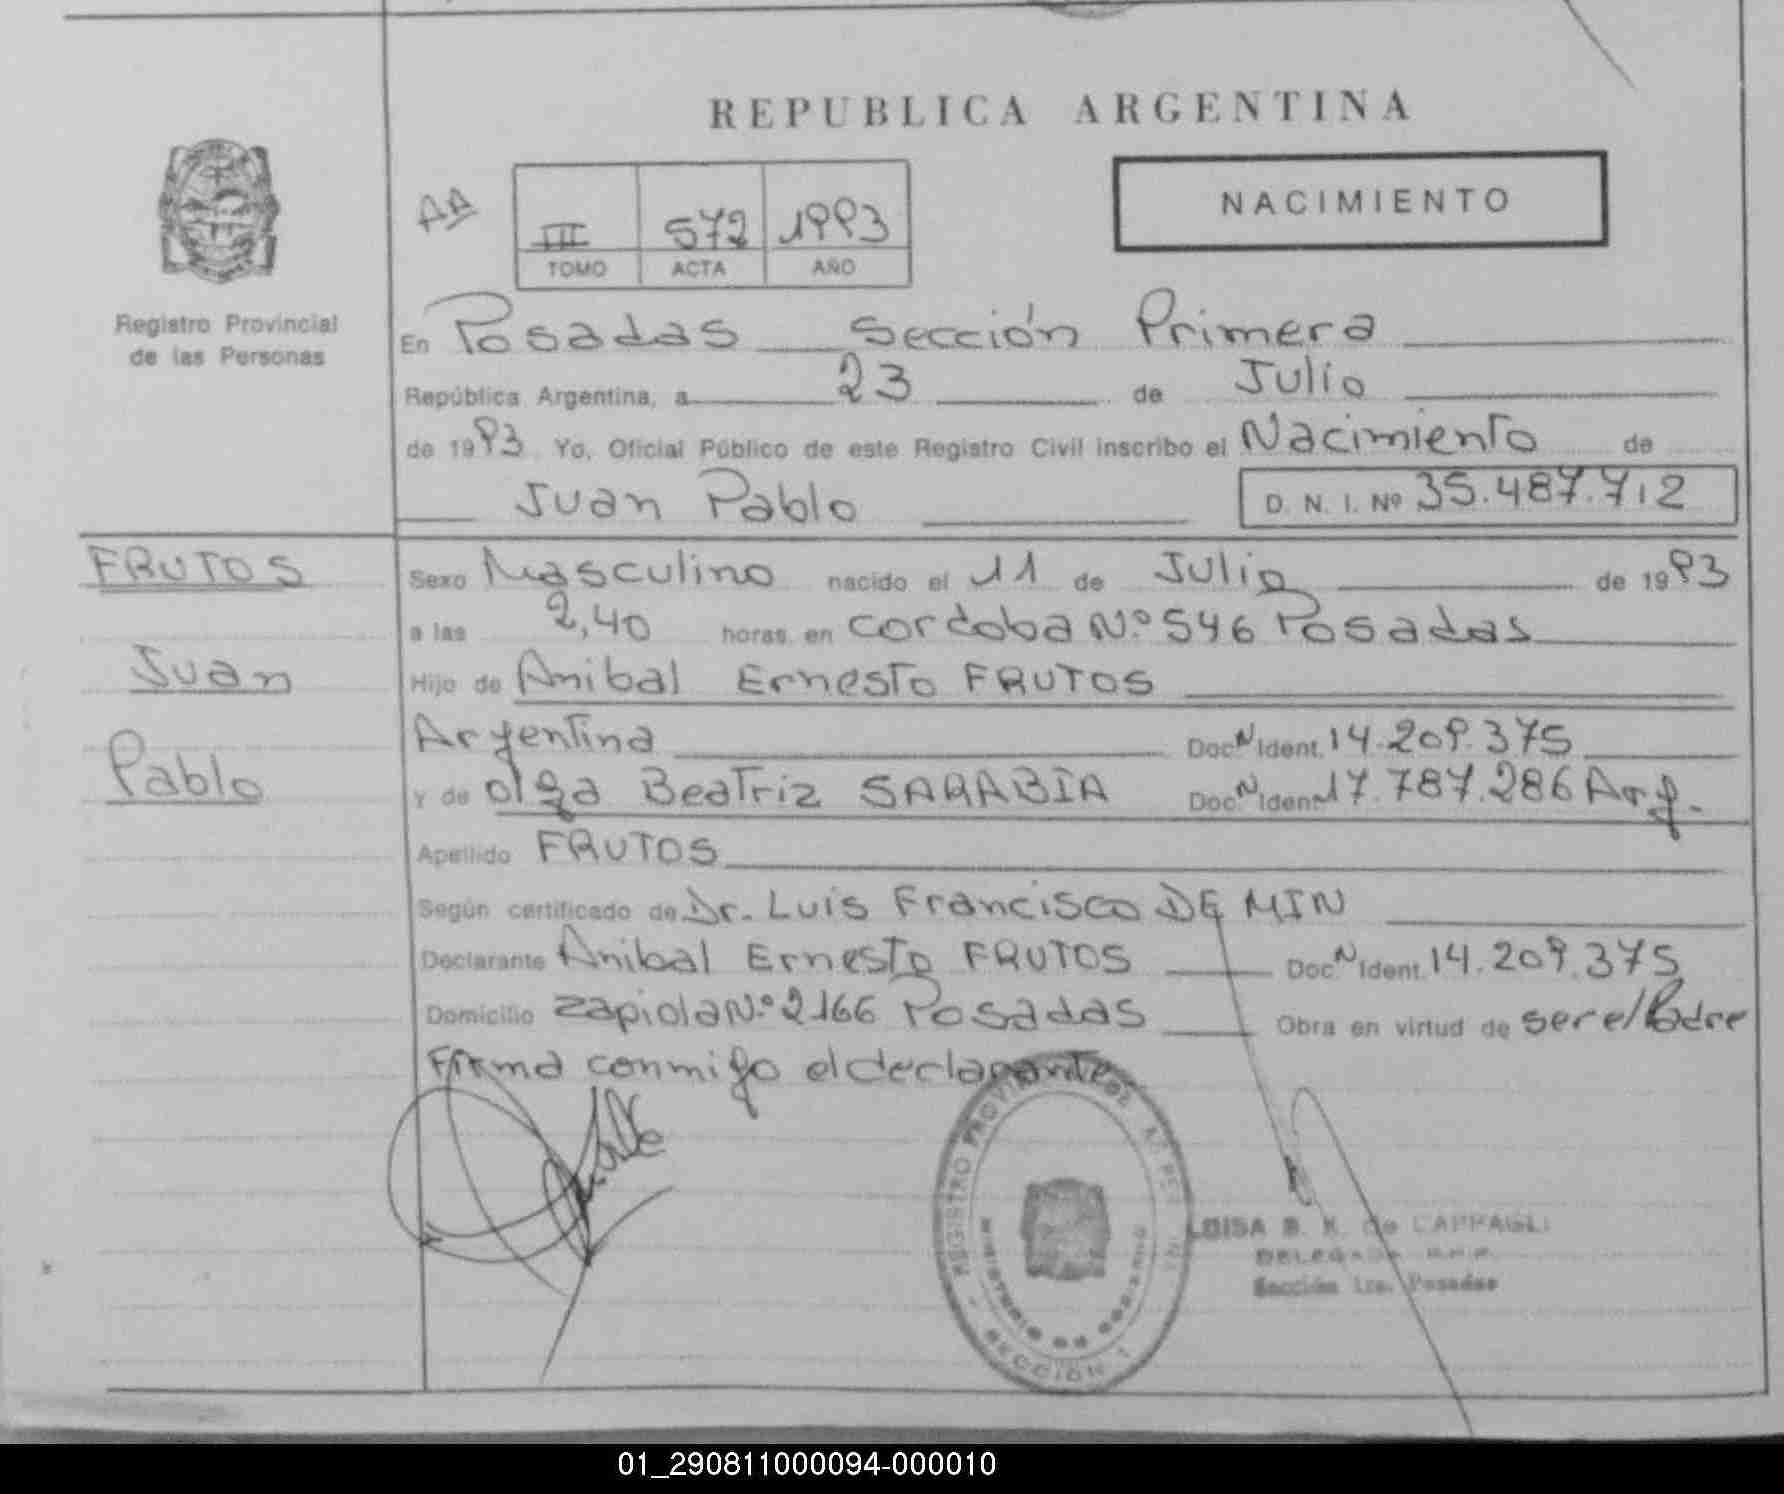 REPUBLICA ARGENTINA
NACIMIENTO
AA
III 572 1993
TOMO ACTA AÑO
Registro Provincial
de las Personas
En Posadas Sección Primera
República Argentina, a 23 de Julio
de 1993 Yo, Oficial Público de este Registro Civil inscribo el Nacimiento de
Juan Pablo D. N. I. Nº 35.487.712
FRUTOS
Juan
Pablo
Sexo Masculino nacido el 11 de Julio de 1993
a las 2,40 horas en cordoba Nº 546 Posadas
Hijo de Anibal Ernesto FRUTOS
Argentina Doc. N Ident. 14.209.375
y de olga Beatriz SARABIA Doc. N Ident. 17.787.286 Arg.
Apellido FRUTOS
Según certificado de Dr. Luis Francisco DE MIN
Declarante Anibal Ernesto FRUTOS Doc. N Ident. 14.209.375
Domicilio zapiola Nº 2166 Posadas Obra en virtud de ser el Padre
Firma conmigo el declarante
REGISTRO PROVINCIAL DE
MINISTERIO DE
SECCION 1
B. K. de
DELEGADA R.P.P.
Sección 1ra. Posadas
01_290811000094-000010